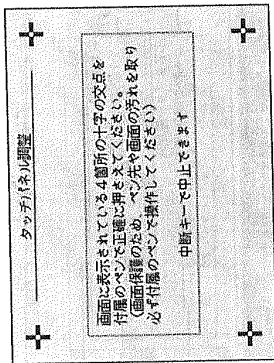 タッチパネル調整
画面に表示されている4箇所の十字の交点を
付属のペンで正確に押さえてください。
(画面保護のため、ペン先や画面の汚れを取り
必ず付属のペンで操作してください)
中断キーで中止できます